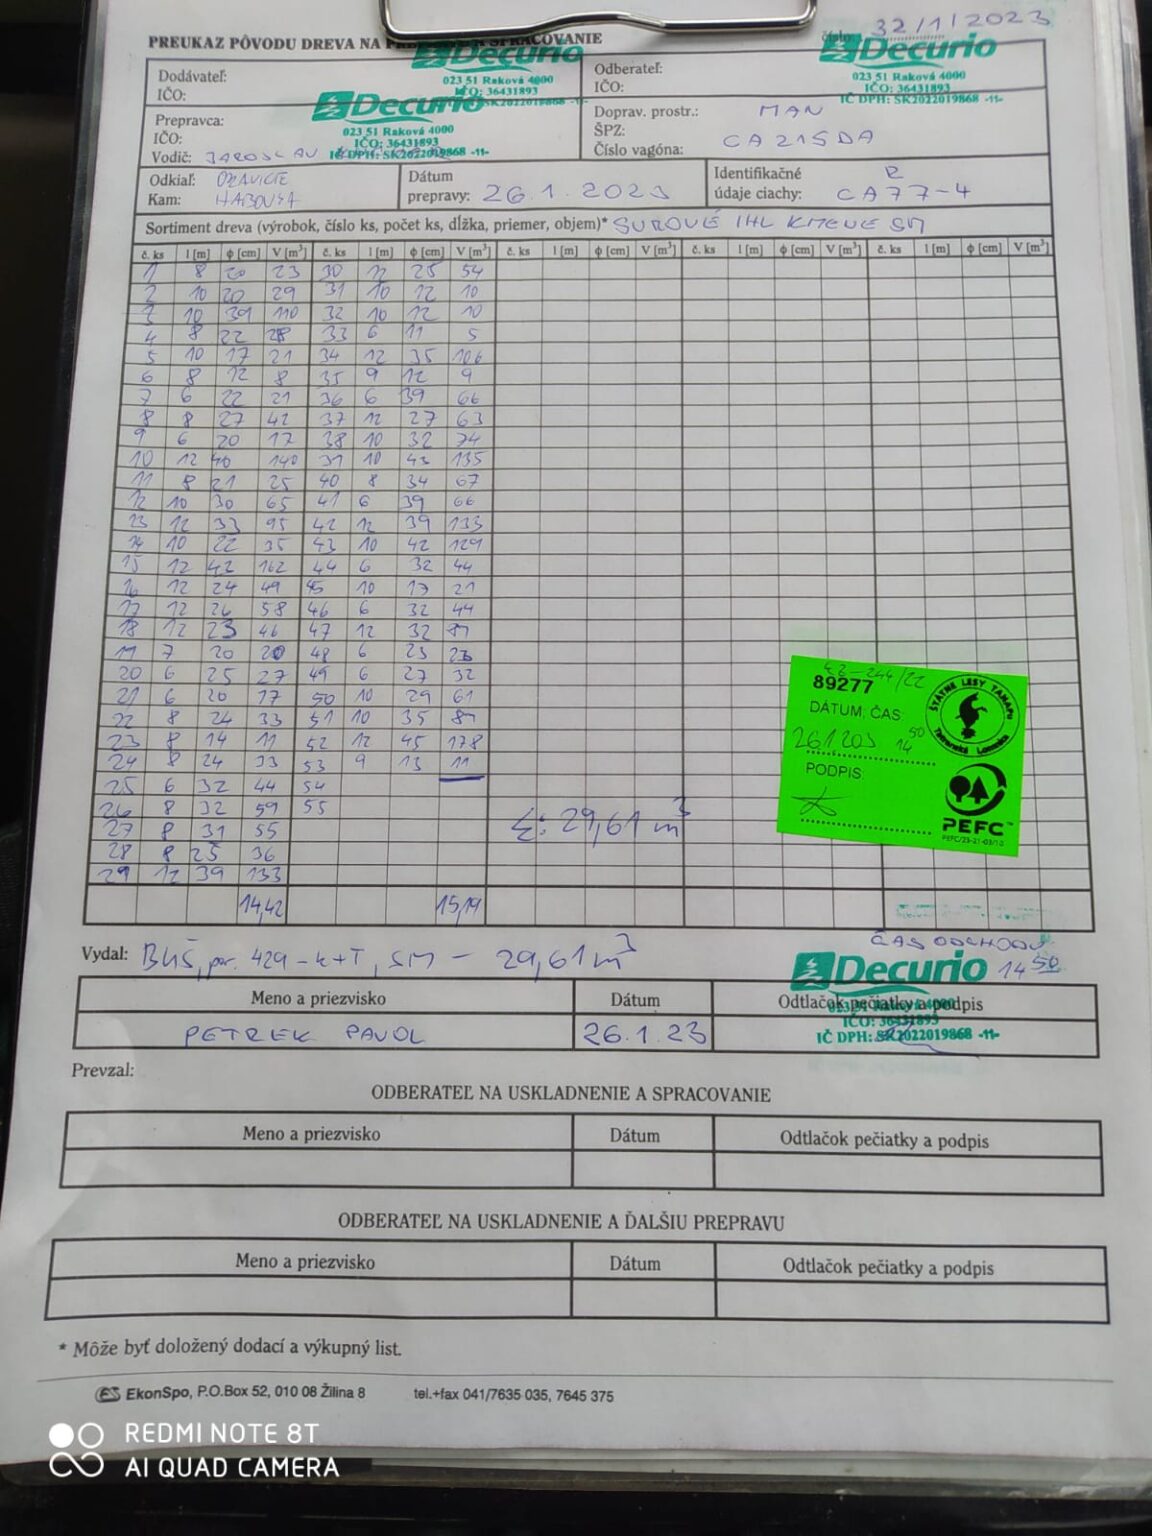 32/1/2023
PREUKAZ PÔVODU DREVA NA SPRACOVANIE číslo
Decurio
023 51 Raková 4000
IČO: 36431893
SK2022019868 -11-
Decurio
023 51 Raková 4000
IČO: 36431893
IČ DPH: SK2022019868 -11-
Dodávateľ:
IČO:
Odberateľ:
IČO:
Decurio
023 51 Raková 4000
IČO: 36431893
IČ DPH: SK2022019868 -11-
Prepravca:
IČO:
Vodič: JAROSLAV
Doprav. prostr.: MAN
ŠPZ:
Číslo vagóna: CA215DA
Odkiaľ: ORAVICE
Kam: HABOVKA
Dátum
prepravy: 26.1.2023
Identifikačné
údaje ciachy: CA77-4
Sortiment dreva (výrobok, číslo ks, počet ks, dĺžka, priemer, objem)* SUROVÉ IHL KMENE SM
č. ks l [m] ϕ [cm] V [m³] č. ks l [m] ϕ [cm] V [m³] č. ks l [m] ϕ [cm] V [m³] č. ks l [m] ϕ [cm] V [m³] č. ks l [m] ϕ [cm] V [m³]
1 8 20 23 30 12 25 54
2 10 20 29 31 10 12 10
3 10 39 110 32 10 12 10
4 8 22 28 33 6 11 5
5 10 17 21 34 12 35 106
6 8 12 8 35 9 12 9
7 6 22 21 36 6 39 66
8 8 27 42 37 12 27 63
9 6 20 17 38 10 32 74
10 12 40 140 39 10 43 135
11 8 21 25 40 8 34 67
12 10 30 65 41 6 39 66
13 12 33 95 42 12 39 133
14 10 22 35 43 10 42 129
15 12 42 162 44 6 32 44
16 12 24 49 45 10 17 21
17 12 26 58 46 6 32 44
18 12 23 46 47 12 32 89
19 7 20 20 48 6 23 23
20 6 25 27 49 6 27 32
21 6 20 17 50 10 29 61
22 8 24 33 51 10 35 89
23 8 14 11 52 12 45 178
24 8 24 33 53 9 13 11
25 6 32 44 54
26 8 32 59 55
27 8 31 55
28 8 25 36
29 12 39 133
Σ: 29,61 m³
14,42 15,19
42-244/22
89277
DÁTUM, ČAS:
14 50
PODPIS:
ŠTÁTNE LESY TANAPu
Tatranská Lomnica
PEFC™
ČAS ODCHODU
14 50
Vydal: por. 429 - k+T, SM - 29,61 m³
Decurio
IČO: 36431893
IČ DPH: SK2022019868 -11-
Meno a priezvisko Dátum Odtlačok pečiatky a podpis
PETREK PAVOL 26.1.23
Prevzal:
ODBERATEĽ NA USKLADNENIE A SPRACOVANIE
Meno a priezvisko Dátum Odtlačok pečiatky a podpis
ODBERATEĽ NA USKLADNENIE A ĎALŠIU PREPRAVU
Meno a priezvisko Dátum Odtlačok pečiatky a podpis
* Môže byť doložený dodací a výkupný list.
ES EkonSpo, P.O.Box 52, 010 08 Žilina 8 tel.+fax 041/7635 035, 7645 375
REDMI NOTE 8T
AI QUAD CAMERA